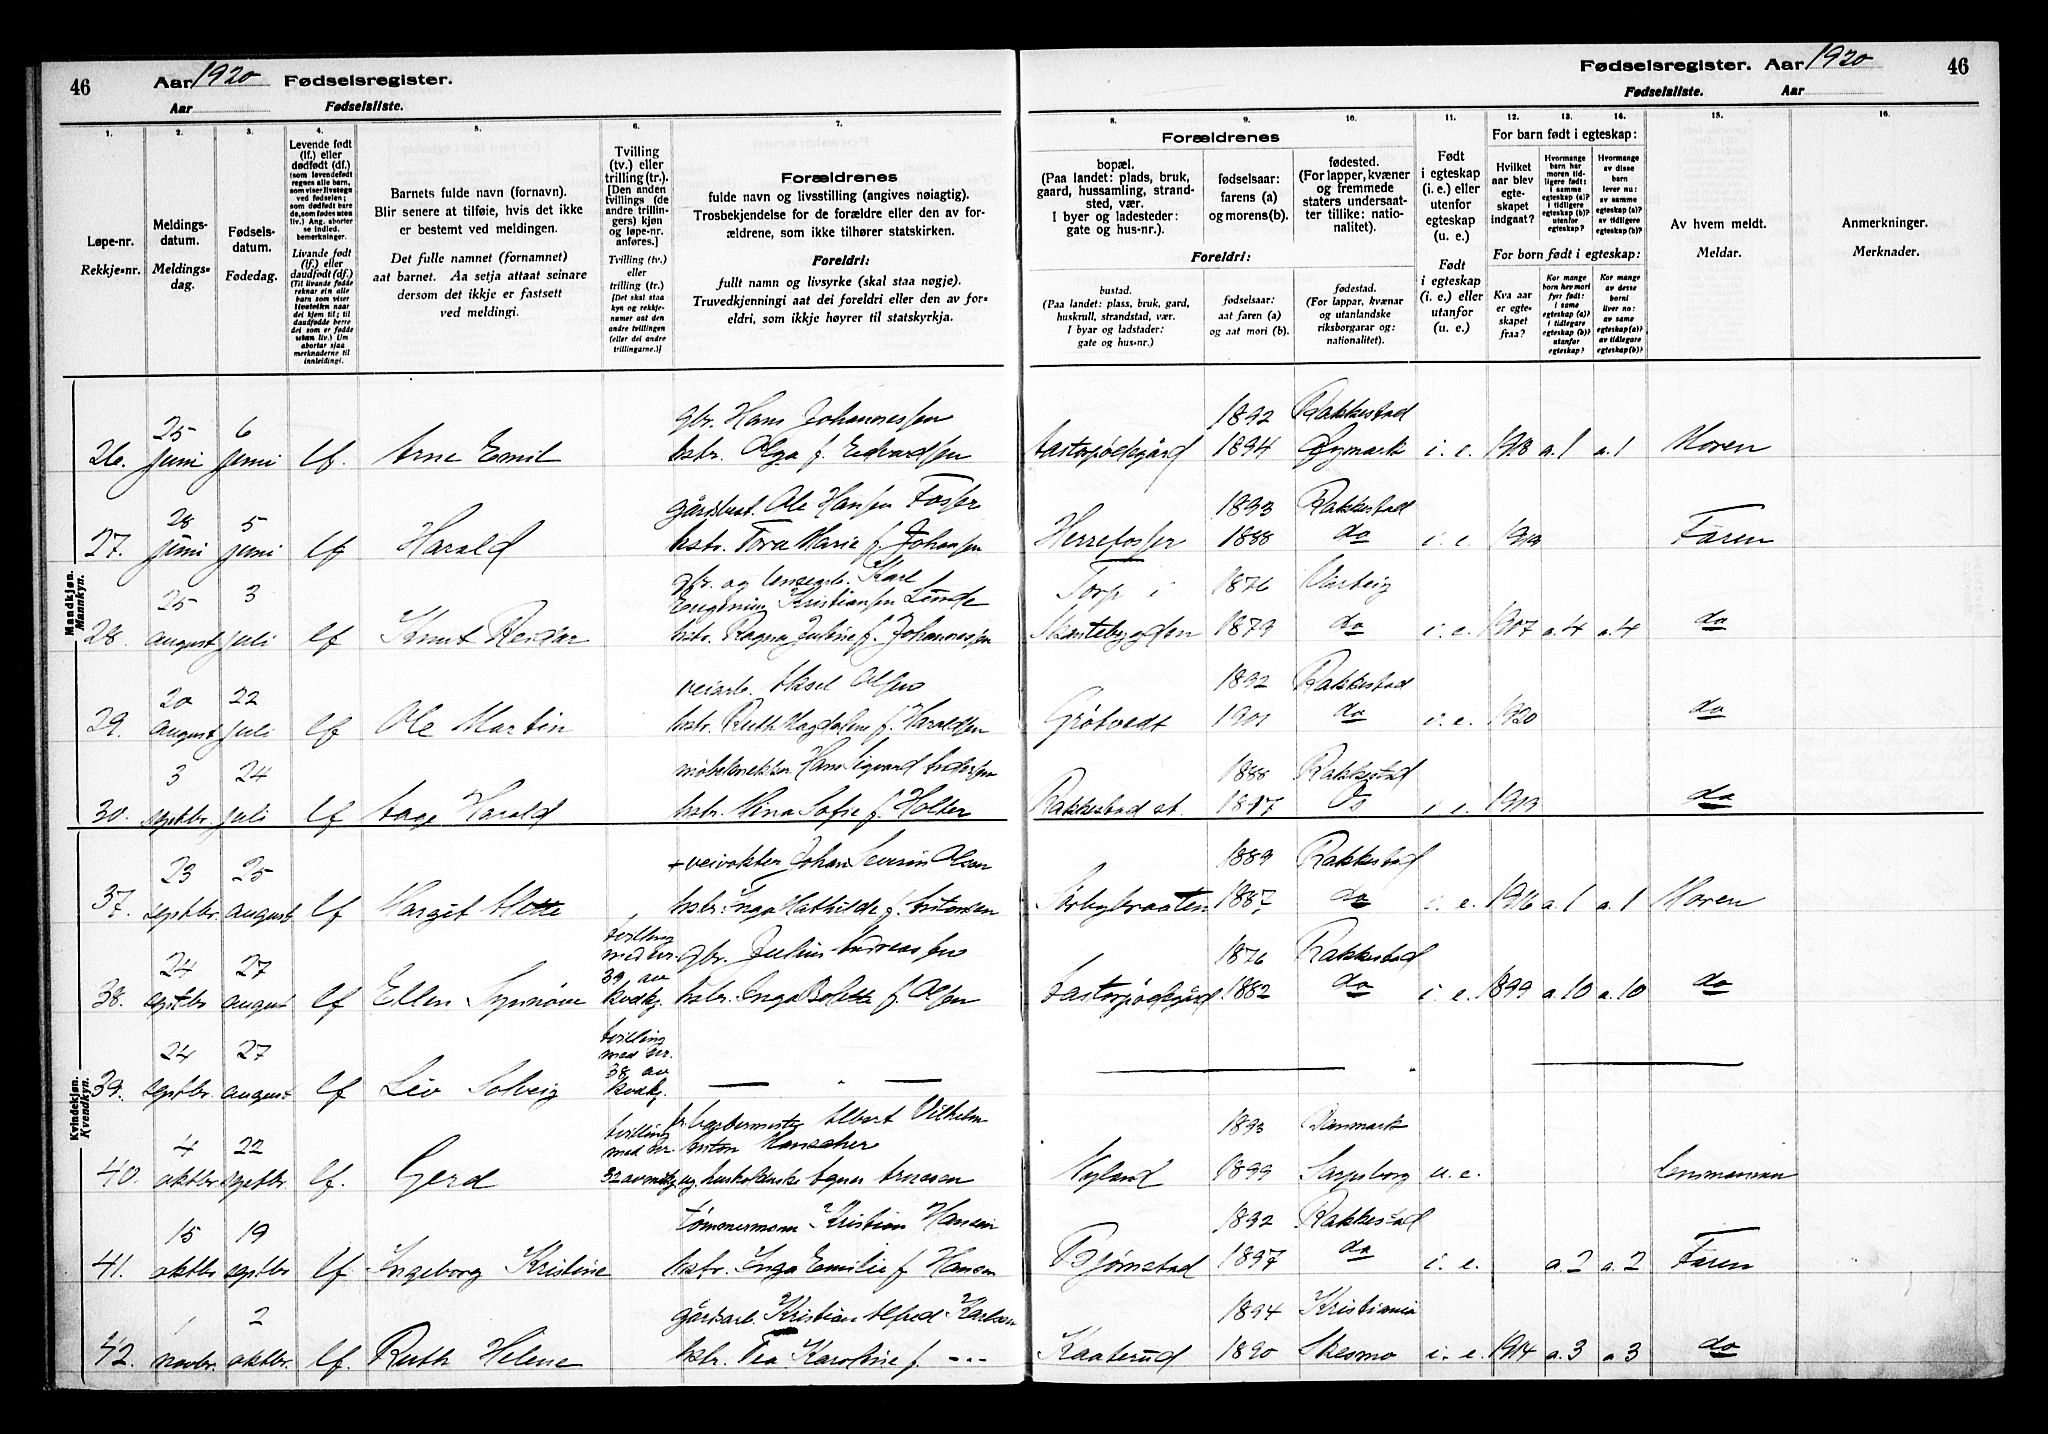 46 Aar 1920 Fødselsregister.
Aar Fødselsliste.
Fødselsregister. Aar 1920 46
Fødselsliste. Aar
1. 2. 3. 4. 5. 6. 7. 8. 9. 10. 11. 12. 13. 14. 15. 16.
Løpe-nr.
Rekkje-nr.
Meldings-
datum.
Meldings-
dag.
Fødsels-
datum.
Fødedag.
Levende født
(lf.) eller
dødfødt (df.)
(som levendefødt
regnes alle barn,
som viser livstegn
ved fødselen;
som dødfødt bare
de, som fødes uten
liv.) Ang. aborter
se indled.
bemerkninger.
Livande født
(lf.) eller
daudfødt (df.)
(Til livande fødde
reknar ein alle
barn som viser
livsteikn naar
dei kjem til; til
daudfødde berre
dei som er fødde
utan liv.) Um
abortar sjaa
merknaderne til
innleidingi.
Barnets fulde navn (fornavn).
Blir senere at tilføie, hvis det ikke
er bestemt ved meldingen.
Det fulle namnet (fornamnet)
aat barnet. Aa setja attaat seinare
dersom det ikkje er fastsett
ved meldingi.
Tvilling
(tv.) eller
trilling (tr.)
[Den anden
tvillings (de
andre trillin-
gers) kjøn
og løpe-nr.
anføres.]
Tvilling (tv.)
eller
trilling (tr.)
[Det skal staa
kyn og rekkje-
numer aat den
andre tvillingen
(eller dei andre
trillingarne.)]
Forældrenes
fulde navn og livsstilling (angives nøiagtig).
Trosbekjendelse for de forældre eller den av for-
ældrene, som ikke tilhører statskirken.
Foreldri:
fullt namn og livsyrke (skal staa nøgje).
Truvedkjenningi aat dei foreldri eller den av for-
eldri, som ikkje høyrer til statskyrkja.
Forældrenes
bopæl.
(Paa landet: plads, bruk,
gaard, hussamling, strand-
sted, vær.
I byer og ladesteder:
gate og hus-nr.).
fødselsaar:
farens (a)
og morens(b).
fødested.
(For lapper, kvæner
og fremmede
staters undersaat-
ter tillike: natio-
nalitet).
Foreldri:
bustad.
(Paa landet: plass, bruk, gard,
huskrull, strandstad, vær.
I byar og ladstader:
gate og hus-nr.)
fødselsaar:
aat faren (a)
og aat mori (b).
fødestad.
(For lappar, kvænar
og utanlandske
riksborgarar og:
nationalitet).
Født
i egteskap
(i. e.) eller
utenfor
egteskap
(u. e.)
Født
i egteskap
(i. e.) eller
utanfor
(u. e.)
For barn født i egteskap:
Hvilket
aar blev
egte-
skapet
indgaat?
Hvormange
barn har
moren tid-
ligere født:
i samme
egteskap (a)?
i tidligere
egteskap (b)?
utenfor
egteskap?
Hvormange
av disse
barn
lever nu:
av samme
egteskap (a)?
av tidligere
egteskap (b)?
For born født i egteskap:
Kva aar
er egte-
skapet
fraa?
Kor mange
born hev mori
fyrr født:
i same
egteskap (a)?
i tidlegare
egteskap (b)?
utanfor
egteskap?
Kor mange
av desse
borni
liver no:
av same
egteskap(a)?
av tidlegare
egteskap(b)?
Av hvem meldt.
Meldar.
Anmerkninger.
Merknader.
Mandkjøn.
Mannkyn.
25 6 gbr. Hans Johannessen 1892 Rakkestad
26. juni juni lf. Arne Emil hstr. Olga f. Edvardsen 1894 Øymark i. e. 1918 a. 1 a. 1 Moren
28 5 Ole Hansen Fosser 1893 Rakkestad
27. juni juni lf Harald hstr. Tora Marie f. Johansen Herrefosser 1888 do i. e. Faren
gbr. og lensearb. Karl
25 3 Kristiansen Lunde Torp i 1876 Varteig
28. august juli lf Knut Reidar hstr. Ragna Juline f. Johannessen Skantebygden 1879 do i. e. 1907 a. 4 a. 4 do
20 22 veiarb. Aksel Olsen 1892 Rakkestad
29. august juli lf Ole Martin hstr. Ruth Magdalene f. Haraldsen Grøtvedt 1901 do i. e. 1920 do
3 24 møbelsnekker Hans Sigvard Andersen 1888 Rakkestad
30. septbr. juli lf Aage Harald hstr. Mina Sofie f. Holter Rakkestad st. Os i. e. do
Kvindekjøn.
Kvendkyn.
23 25 + veivokter Johan Severin Olsen 1889 Rakkestad
37. septbr. august lf Margit Mette hstr. Inga Mathilde f. Antonsen Sørbybraaten 1887 do i. e. 1916 a. 1 a. 1 Moren
24 27 tvilling med nr. 39 av kvdkj. gbr. Julius Andreassen 1876 Rakkestad
38. septbr august lf Ellen Synnøve hstr. Inga Bolette f. Olsen 1882 do i. e. 1899 a. 10 a. 10 do
24 27 tvilling med nr.
39. septbr. august lf Liv Solveig 38 av kvdkj. — " — — " —
4 22 tvilling med nr. Albert Vilhelm
Anton 1893 Danmark
40. oktbr. septbr. lf. Gerd 32 av mdkj. og Agnes Arnesen Nyland 1899 Sarpsborg u. e. Lensmannen
15 19 tømmermann Kristian Hansen 1892 Rakkestad
41. oktbr septbr lf. Ingeborg Kristine hstr. Inga Emilie f. Hansen Bjørnstad 1897 do i. e. a. 2 a. 2 Faren
1 2 gårdsarb. Kristian Alfred Karlsen 1894 Kristiania
42. novbr. oktbr. lf. Ruth Helene hstr. Tea Karoline f. --- Kaaterud 1890 Skesmo i. e. 1914 a. 3 a 3 do